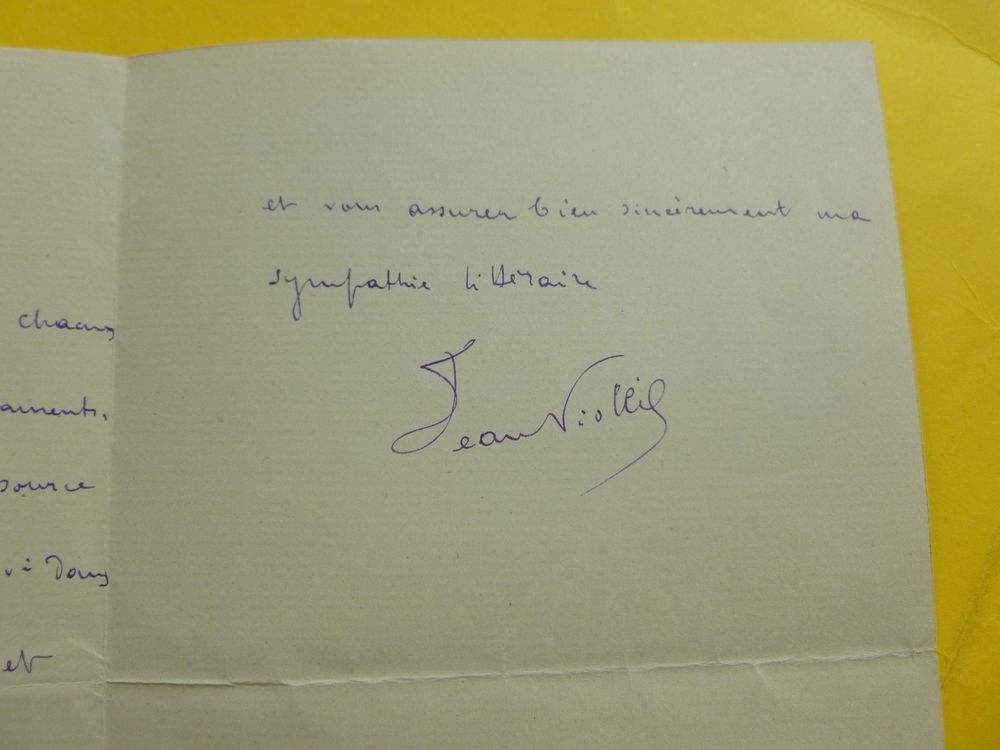 chacun
source
et
et vous assurer bien sincèrement ma
sympathie littéraire
Jean Viollis